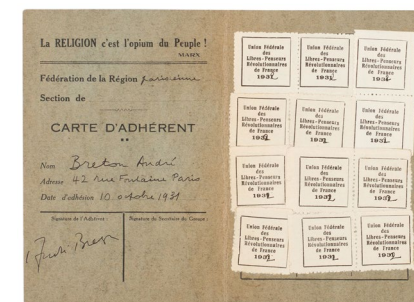 La RELIGION c'est l'opium du Peuple !
MARX
Fédération de la Région parisienne
Section de
CARTE D'ADHÉRENT
Nom Breton André
Adresse 42 rue Fontaine Paris
Date d'adhésion 10 octobre 1931
Signature de l'Adhérent : Signature du Secrétaire du Groupe :
André Breton
Union Fédérale
des
Libres-Penseurs
Révolutionnaires
de France
1932
Union Fédérale
des
Libres-Penseurs
Révolutionnaires
de France
1932
Union Fédérale
des
Libres-Penseurs
Révolutionnaires
de France
1932
Union Fédérale
des
Libres-Penseurs
Révolutionnaires
de France
1932
Union Fédérale
des
Libres-Penseurs
Révolutionnaires
de France
1932
Union Fédérale
des
Libres-Penseurs
Révolutionnaires
de France
1932
Union Fédérale
des
Libres-Penseurs
Révolutionnaires
de France
1932
Union Fédérale
des
Libres-Penseurs
Révolutionnaires
de France
1932
Union Fédérale
des
Libres-Penseurs
Révolutionnaires
de France
1932
Union Fédérale
des
Libres-Penseurs
Révolutionnaires
de France
1932
Union Fédérale
des
Libres-Penseurs
Révolutionnaires
de France
1932
Union Fédérale
des
Libres-Penseurs
Révolutionnaires
de France
1932